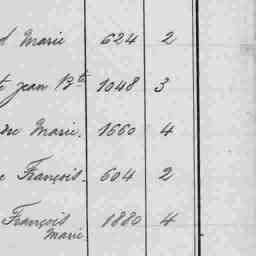 Marie 624 2
Jean Bte 1048 3
Marie. 1660 4
François. 604 2
François 1880 4
Marie